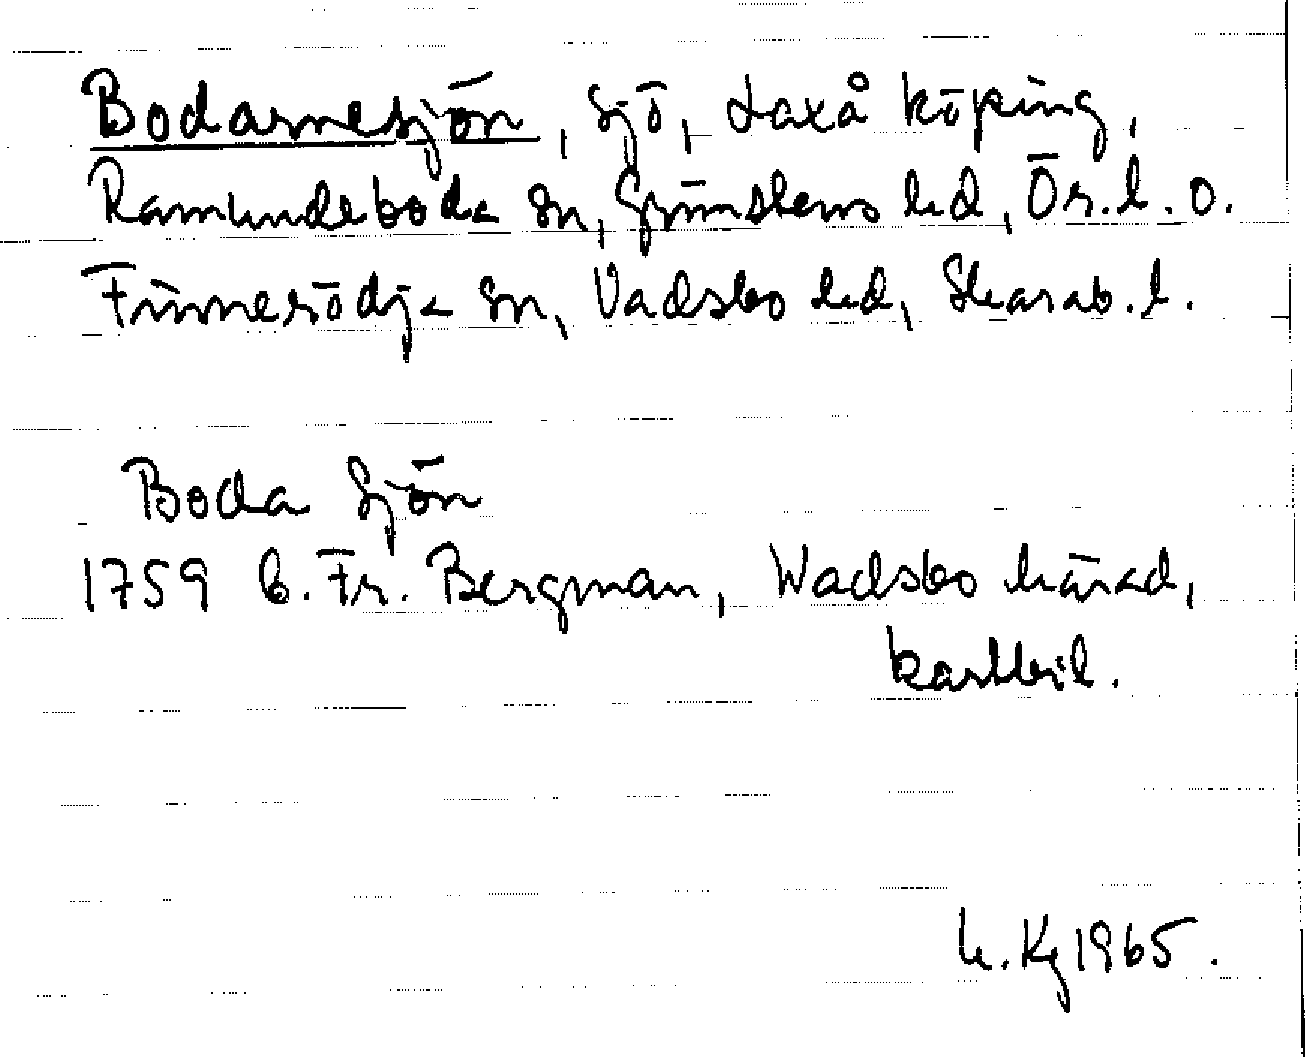 Bodarnesjön, sjö, Laxå köping,
Ramundeboda sn, Grimstens hd, Ör. l. o.
Finnerödja sn, Vadsbo hd, Skarab. l.
Boda Sjön
1759 C. Fr. Bergman, Wadsbo härad,
kartbil.
K. Kg 1965.